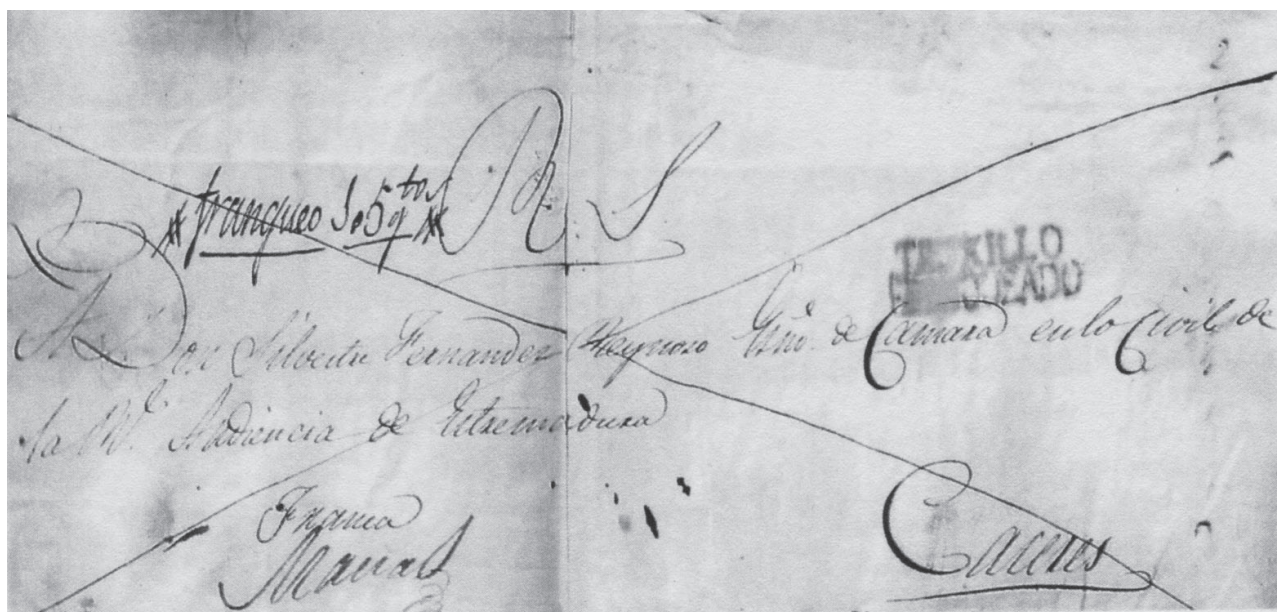 R. S.
franqueo 5 qtos
TRUXILLO
FRANQUEADO
A Don Silvestre Fernandez Reynoso Ssno. de Camara en lo Civil de
la Rl. Audiencia de Estremadura
Franca
Caceres